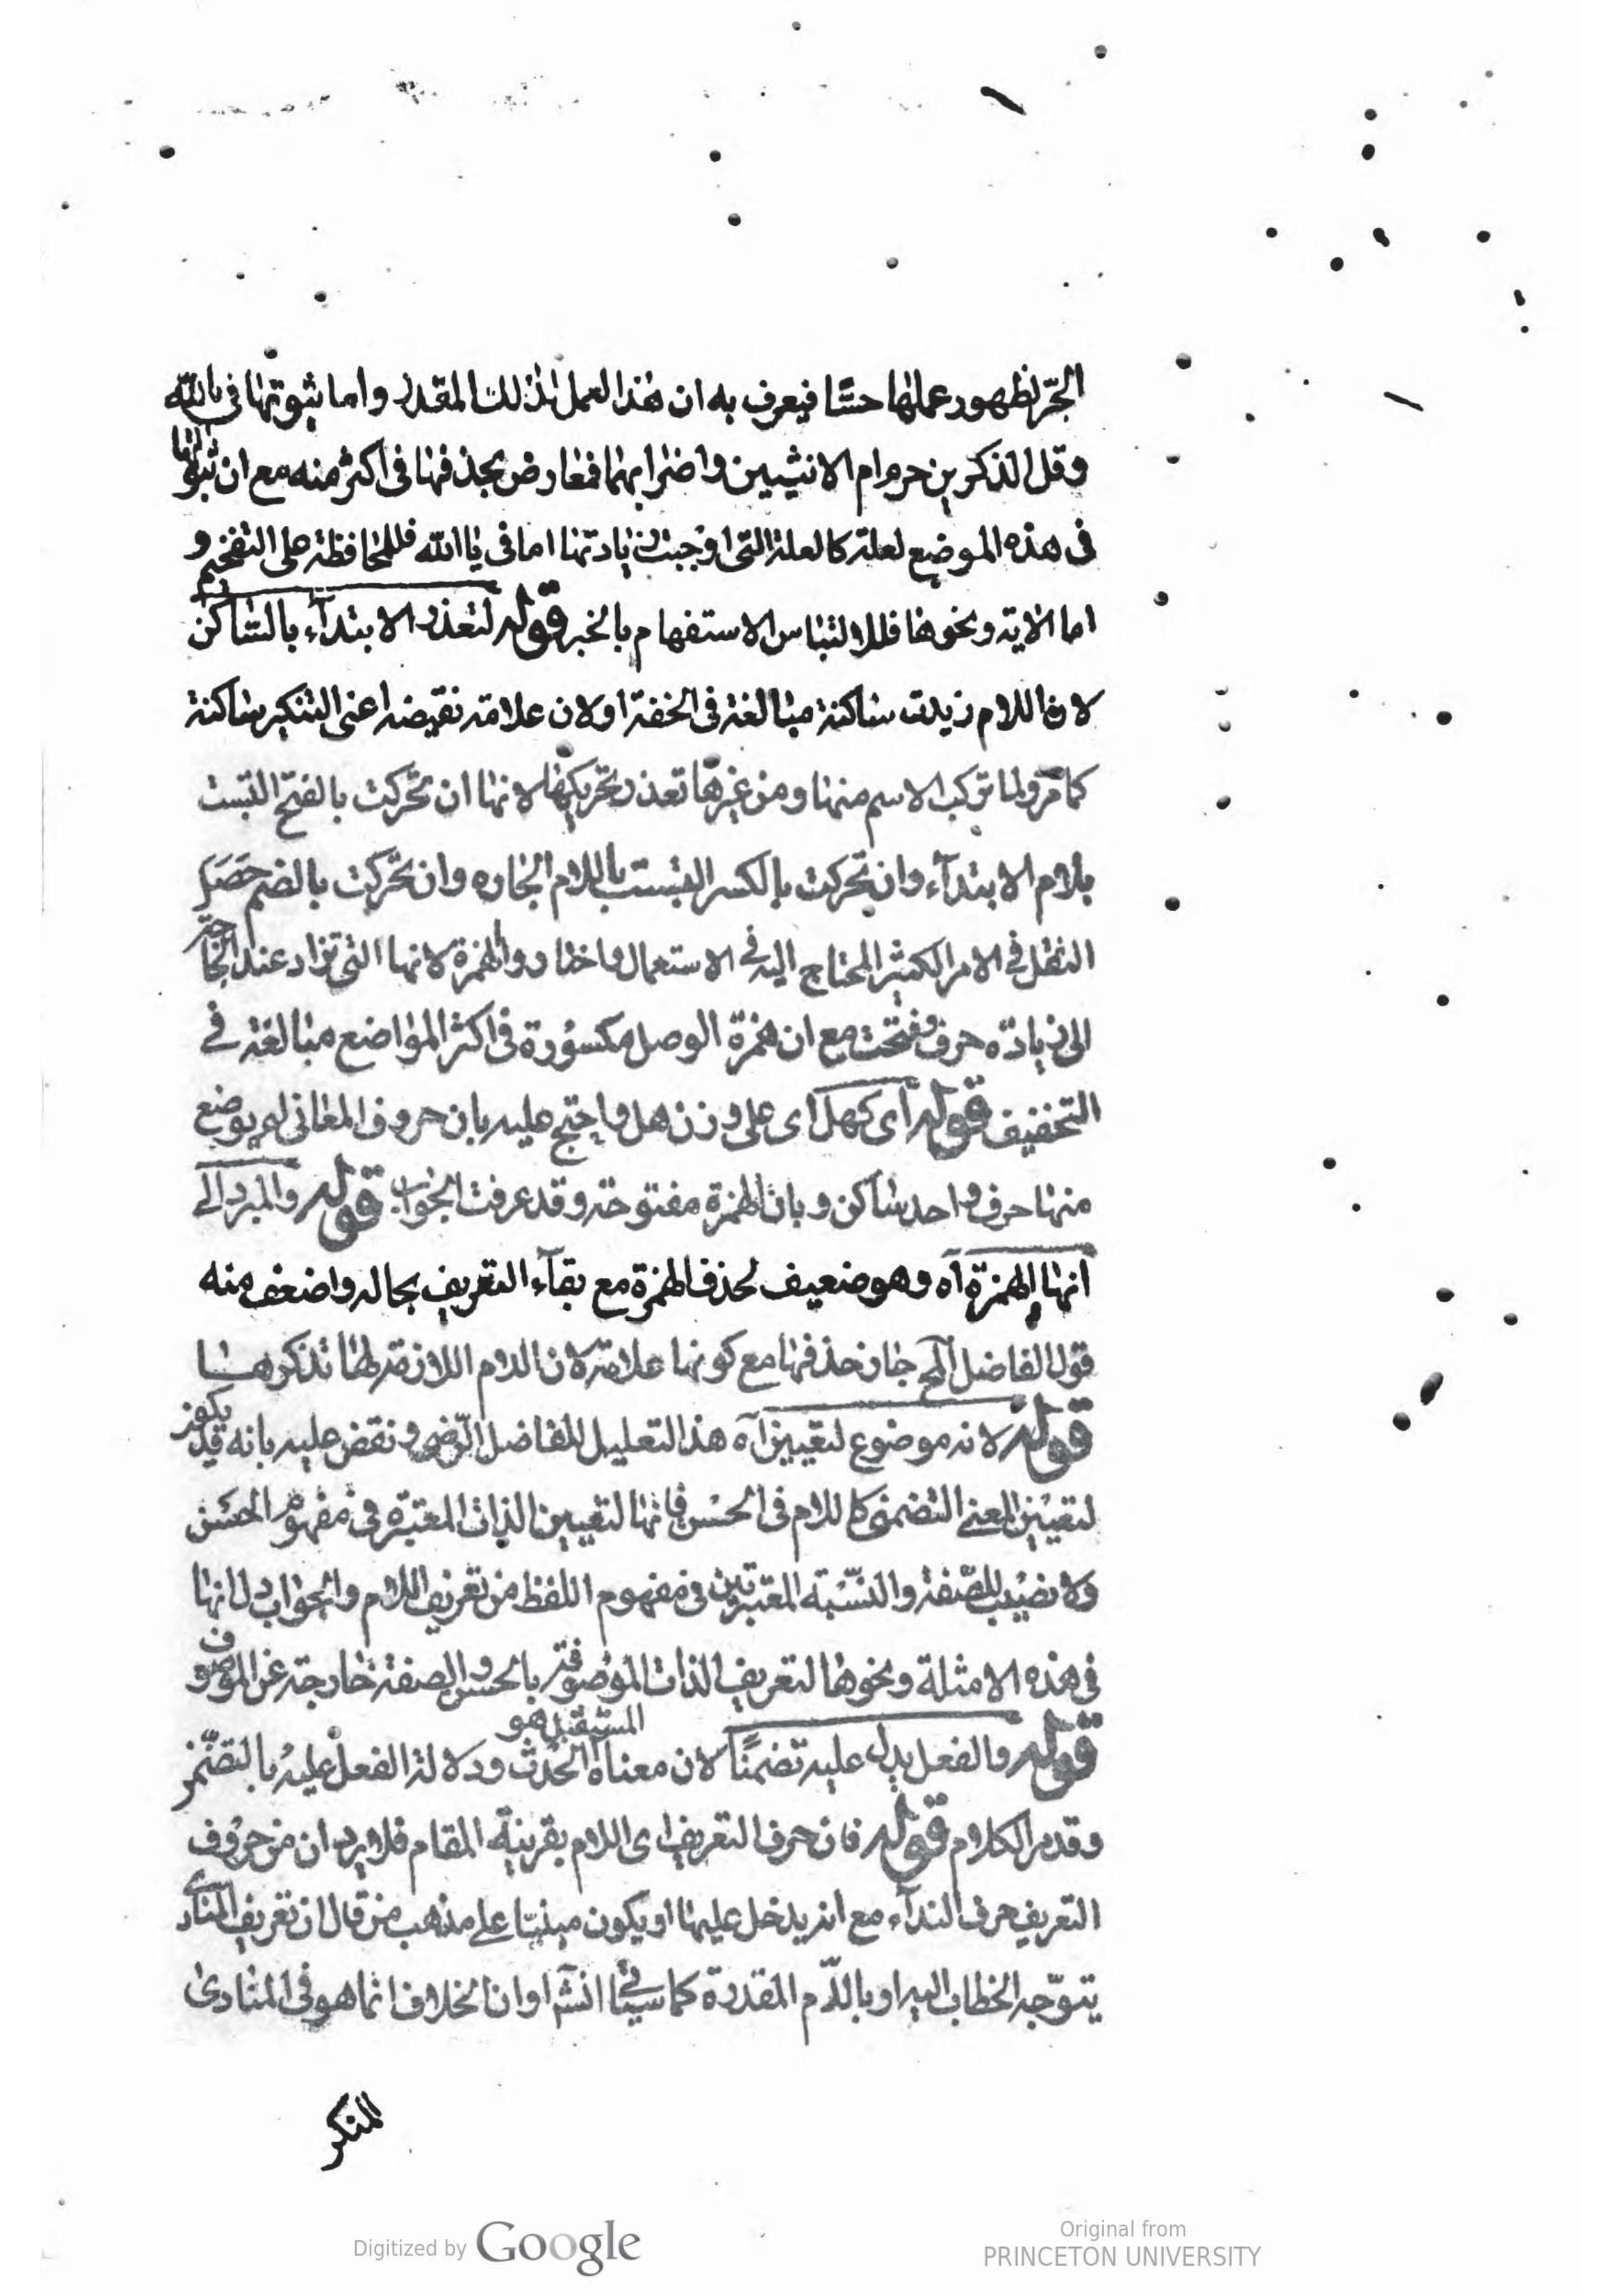 الجرّ لظهور عملها حسّا فيعرف به ان هذا العمل لذلك المقدر واما ثبوتها فى يا الله
وقل الذكرين حرم ام الانثيين واضرابهما فمعارض بحذفها فى اكثر منه مع ان ثبوتها
فى هذه الموضع لعلة كالعلة التى اوجبت زيادتها اما فى يا الله فللمحافظة على التفخيم و
اما الآية ونحوها فللالتباس الاستفهام بالخبر قوله لتعذر الابتدآء بالسّاكن
لان اللام زيدت ساكنة مبالغة فى الخفة او لان علامة نقيضه اعنى التنكير ساكنة
كما مرّ ولما تركب الاسم منها ومن غيرها تعذر تحريكها لانها ان تحركت بالفتح التبست
بلام الابتدآء وان تحركت بالكسر التبست باللام الجاره وان تحركت بالضم حصَل
الثقل فى الامر الكثير المحتاج اليه فى الاستعمال واختاروا الهمزة لانها التى تزاد عند الحاجة
الى زيادة حرف وفتحت مع ان همزة الوصل مكسورة فى اكثر المواضع مبالغة فى
التخفيف قوله اى كهل اى على وزن هل واحتج عليه بان حروف المعانى لم يوضع
منها حرف واحد ساكن وبان الهمزة مفتوحة وقد عرفت الجواب قوله والمبرد الى
انها الهمزة آه وهو ضعيف لحذف الهمزة مع بقآء التعريف بحاله واضعف منه
قول الفاضل جاز حذفها مع كونها علامة لان اللام اللازمة لها تذكرها
قوله لانه موضوع لتعيين آه هذا التعليل للفاضل الرّضى ونقض عليه بانه قد يكون
لتعيين المعنى التضمنى كاللام فى الحسن فانها لتعيين الذات المعتبرة فى مفهوم الحسَن
ولا نصيب للصّفة والنّسبة المعتبرتين فى مفهوم اللفظ من تعريف اللام والجواب انها
فى هذه الامثلة ونحوها لتعريف الذات الموصوفة بالحسن والصفة خارجة عن الموصوف
قوله والفعل يدل عليه تضمنًا لان معناه المستقبل هو الحدث ودلالة الفعل عليه بالتضمّن
وقد مر الكلام قوله فان حرف التعريف اى اللام بقرينة المقام فلا يرد ان من حروف
التعريف حرف الندآء مع انه يدخل عليها او يكون مبنيّا على مذهب من قال ان تعريف المنادى
يتوجّه الخطاب اليه او باللّام المقدرة كما سيجئ انشآ او ان الخلاف انما هو فى المنادى
المنكر
Digitized by Google
Original from
PRINCETON UNIVERSITY